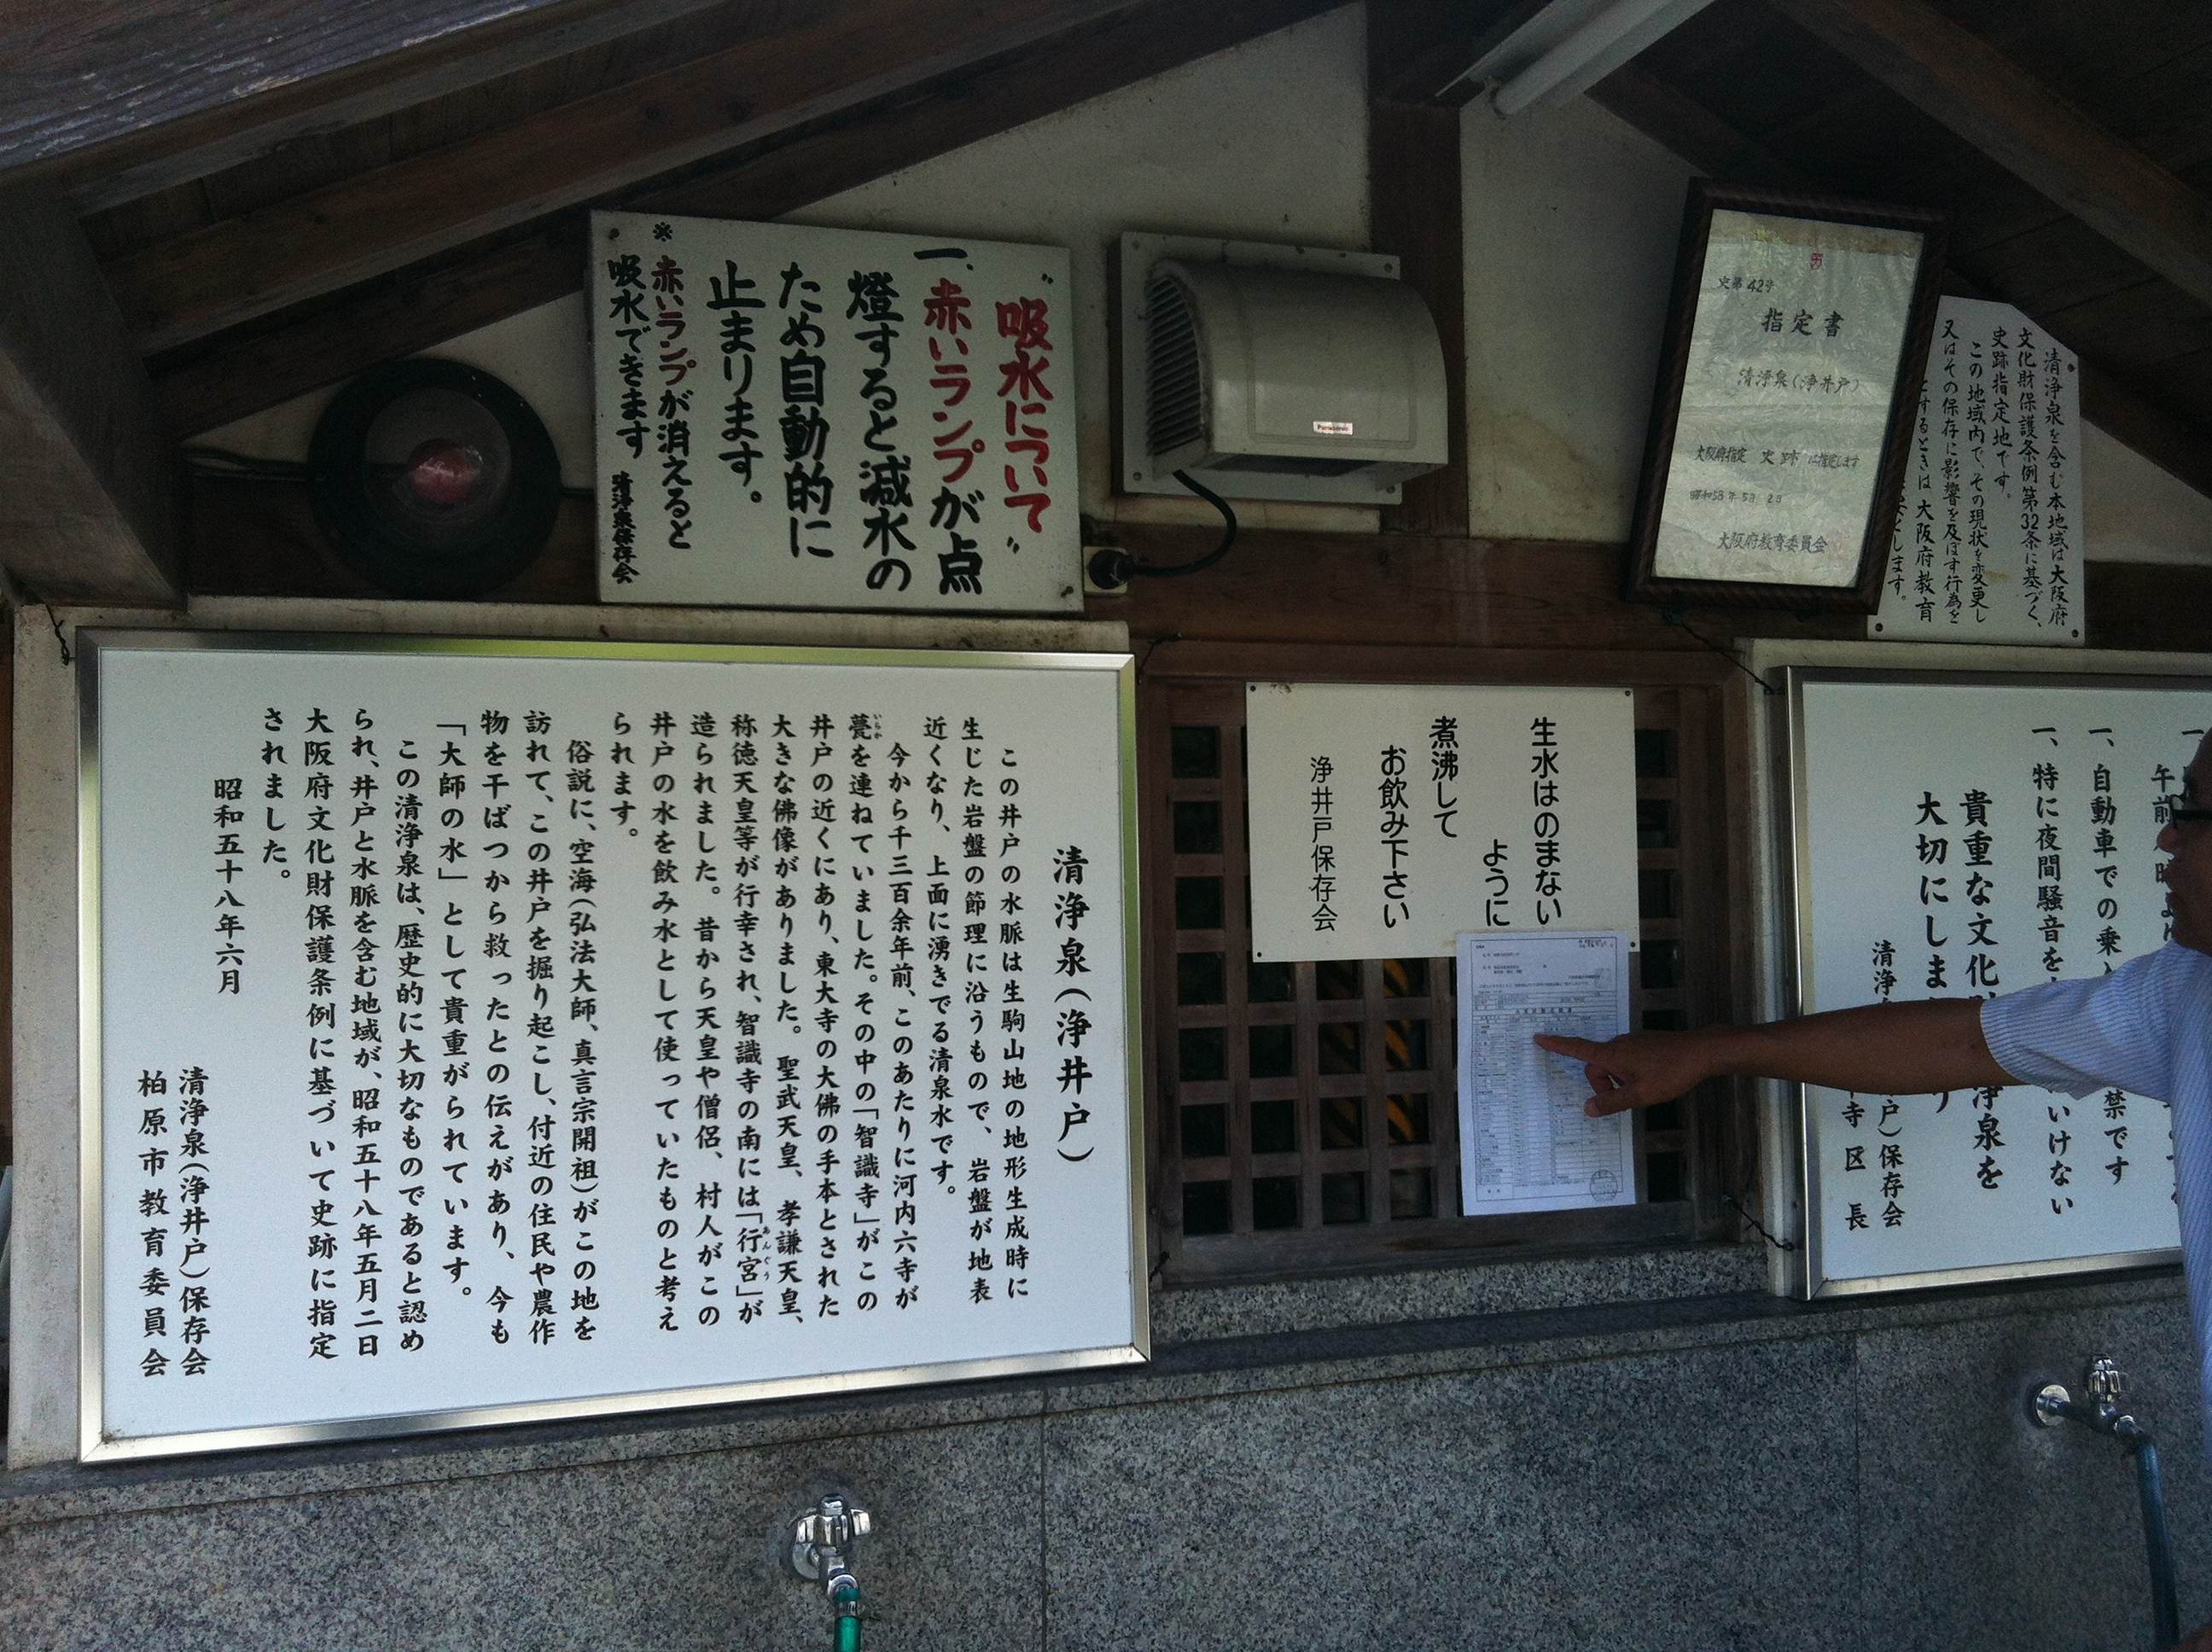 "吸水について"
一、赤いランプが点
燈すると減水の
ため自動的に
止まります。
※赤いランプが消えると
吸水できます
清浄泉保存会
Panasonic
史第42号
指定書
清浄泉(浄井戸)
大阪府指定 史跡 に指定します
昭和58年5月2日
大阪府教育委員会
清浄泉を含む本地域は大阪府
文化財保護条例第32条に基づく、
史跡指定地です。
この地域内で、その現状を変更し
又はその保存に影響を及ぼす行為を
とするときは大阪府教育
とします。
清浄泉(浄井戸)
この井戸の水脈は生駒山地の地形生成時に
生じた岩盤の節理に沿うもので、岩盤が地表
近くなり、上面に湧きでる清泉水です。
今から千三百余年前、このあたりに河内六寺が
甍を連ねていました。その中の「智識寺」がこの
いらか
井戸の近くにあり、東大寺の大佛の手本とされた
大きな佛像がありました。聖武天皇、孝謙天皇、
称徳天皇等が行幸され、智識寺の南には「行宮」が
あんぐう
造られました。昔から天皇や僧侶、村人がこの
井戸の水を飲み水として使っていたものと考え
られます。
俗説に、空海(弘法大師、真言宗開祖)がこの地を
訪れて、この井戸を掘り起こし、付近の住民や農作
物を干ばつから救ったとの伝えがあり、今も
「大師の水」として貴重がられています。
この清浄泉は、歴史的に大切なものであると認め
られ、井戸と水脈を含む地域が、昭和五十八年五月二日
大阪府文化財保護条例に基づいて史跡に指定
されました。
昭和五十八年六月
清浄泉(浄井戸)保存会
柏原市教育委員会
生水はのまない
ように
煮沸して
お飲み下さい
浄井戸保存会
午前
一、自動車での乗入 禁です
一、特に夜間騒音を いけない
貴重な文化財 浄泉を
大切にしま
清浄 戸)保存会
寺区長